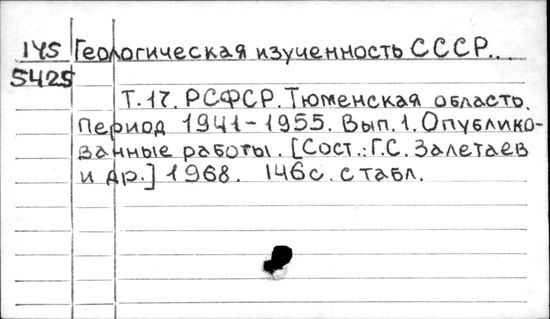 145 Геологическая изученность СССР...
5425
Т.17. РСФСР. Тюменская область.
Период 1941-1955. Вып.1. Опублико-
ванные работы. [Сост.: Г.С. Залетаев
и др.] 1968. 146с. с табл.